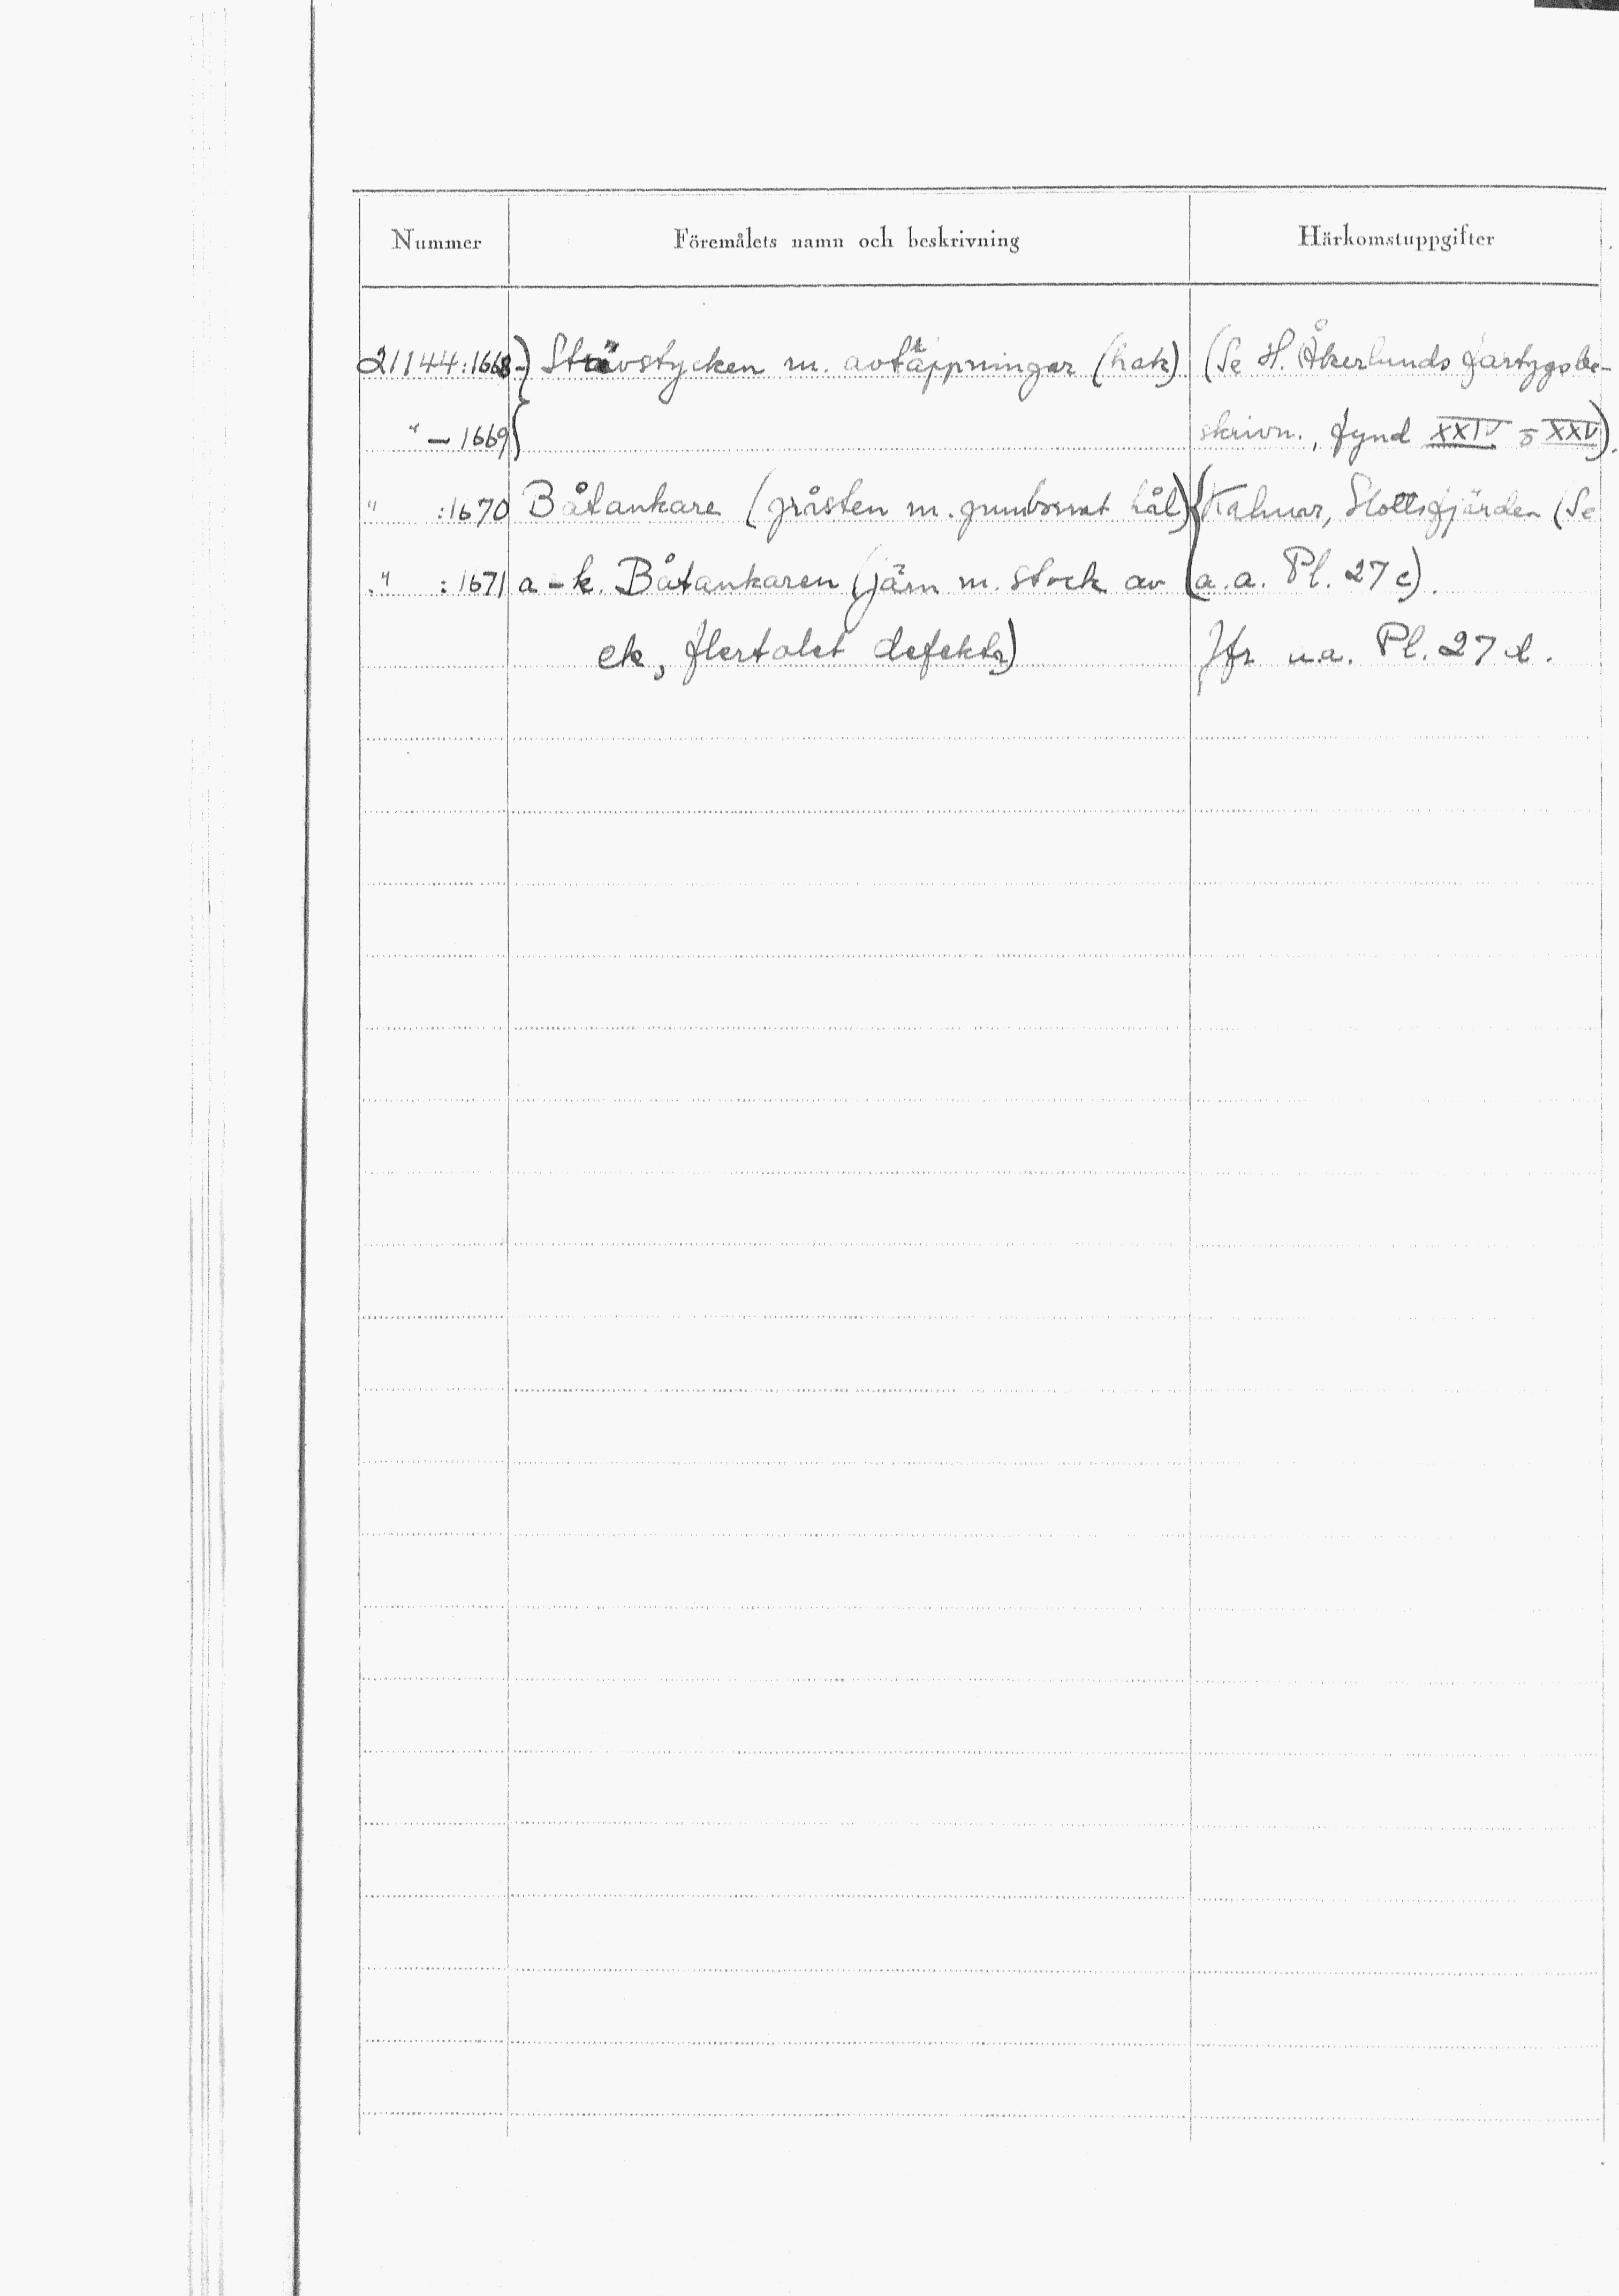 Nummer Föremålets namn och beskrivning Härkomstuppgifter
21144:1668-) Strävstycken m. avtäppningar (hak) (Se H. Åkerlunds fartygsbe-
" — 1669) skrivn., fynd XXIV o XXV).
" :1670 Båtankare (gråsten m. genomborrat hål) Kalmar, Slottsfjärden (Se
" :1671 a-k. Båtankaren (järn m. stock av a.a. Pl. 27 c).
ek, flertalet defekta) Jfr a.a. Pl. 27 d.